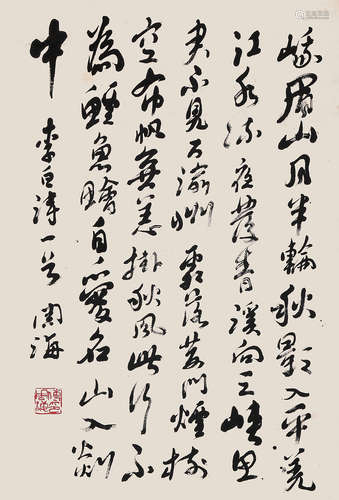 峨眉山月半輪秋影入平羌
江水流夜發青溪向三峽思
君不見下渝州霜落荊門煙樹
空布帆無恙掛秋風此行不
為鱸魚鱠自愛名山入剡
中 李白詩一首